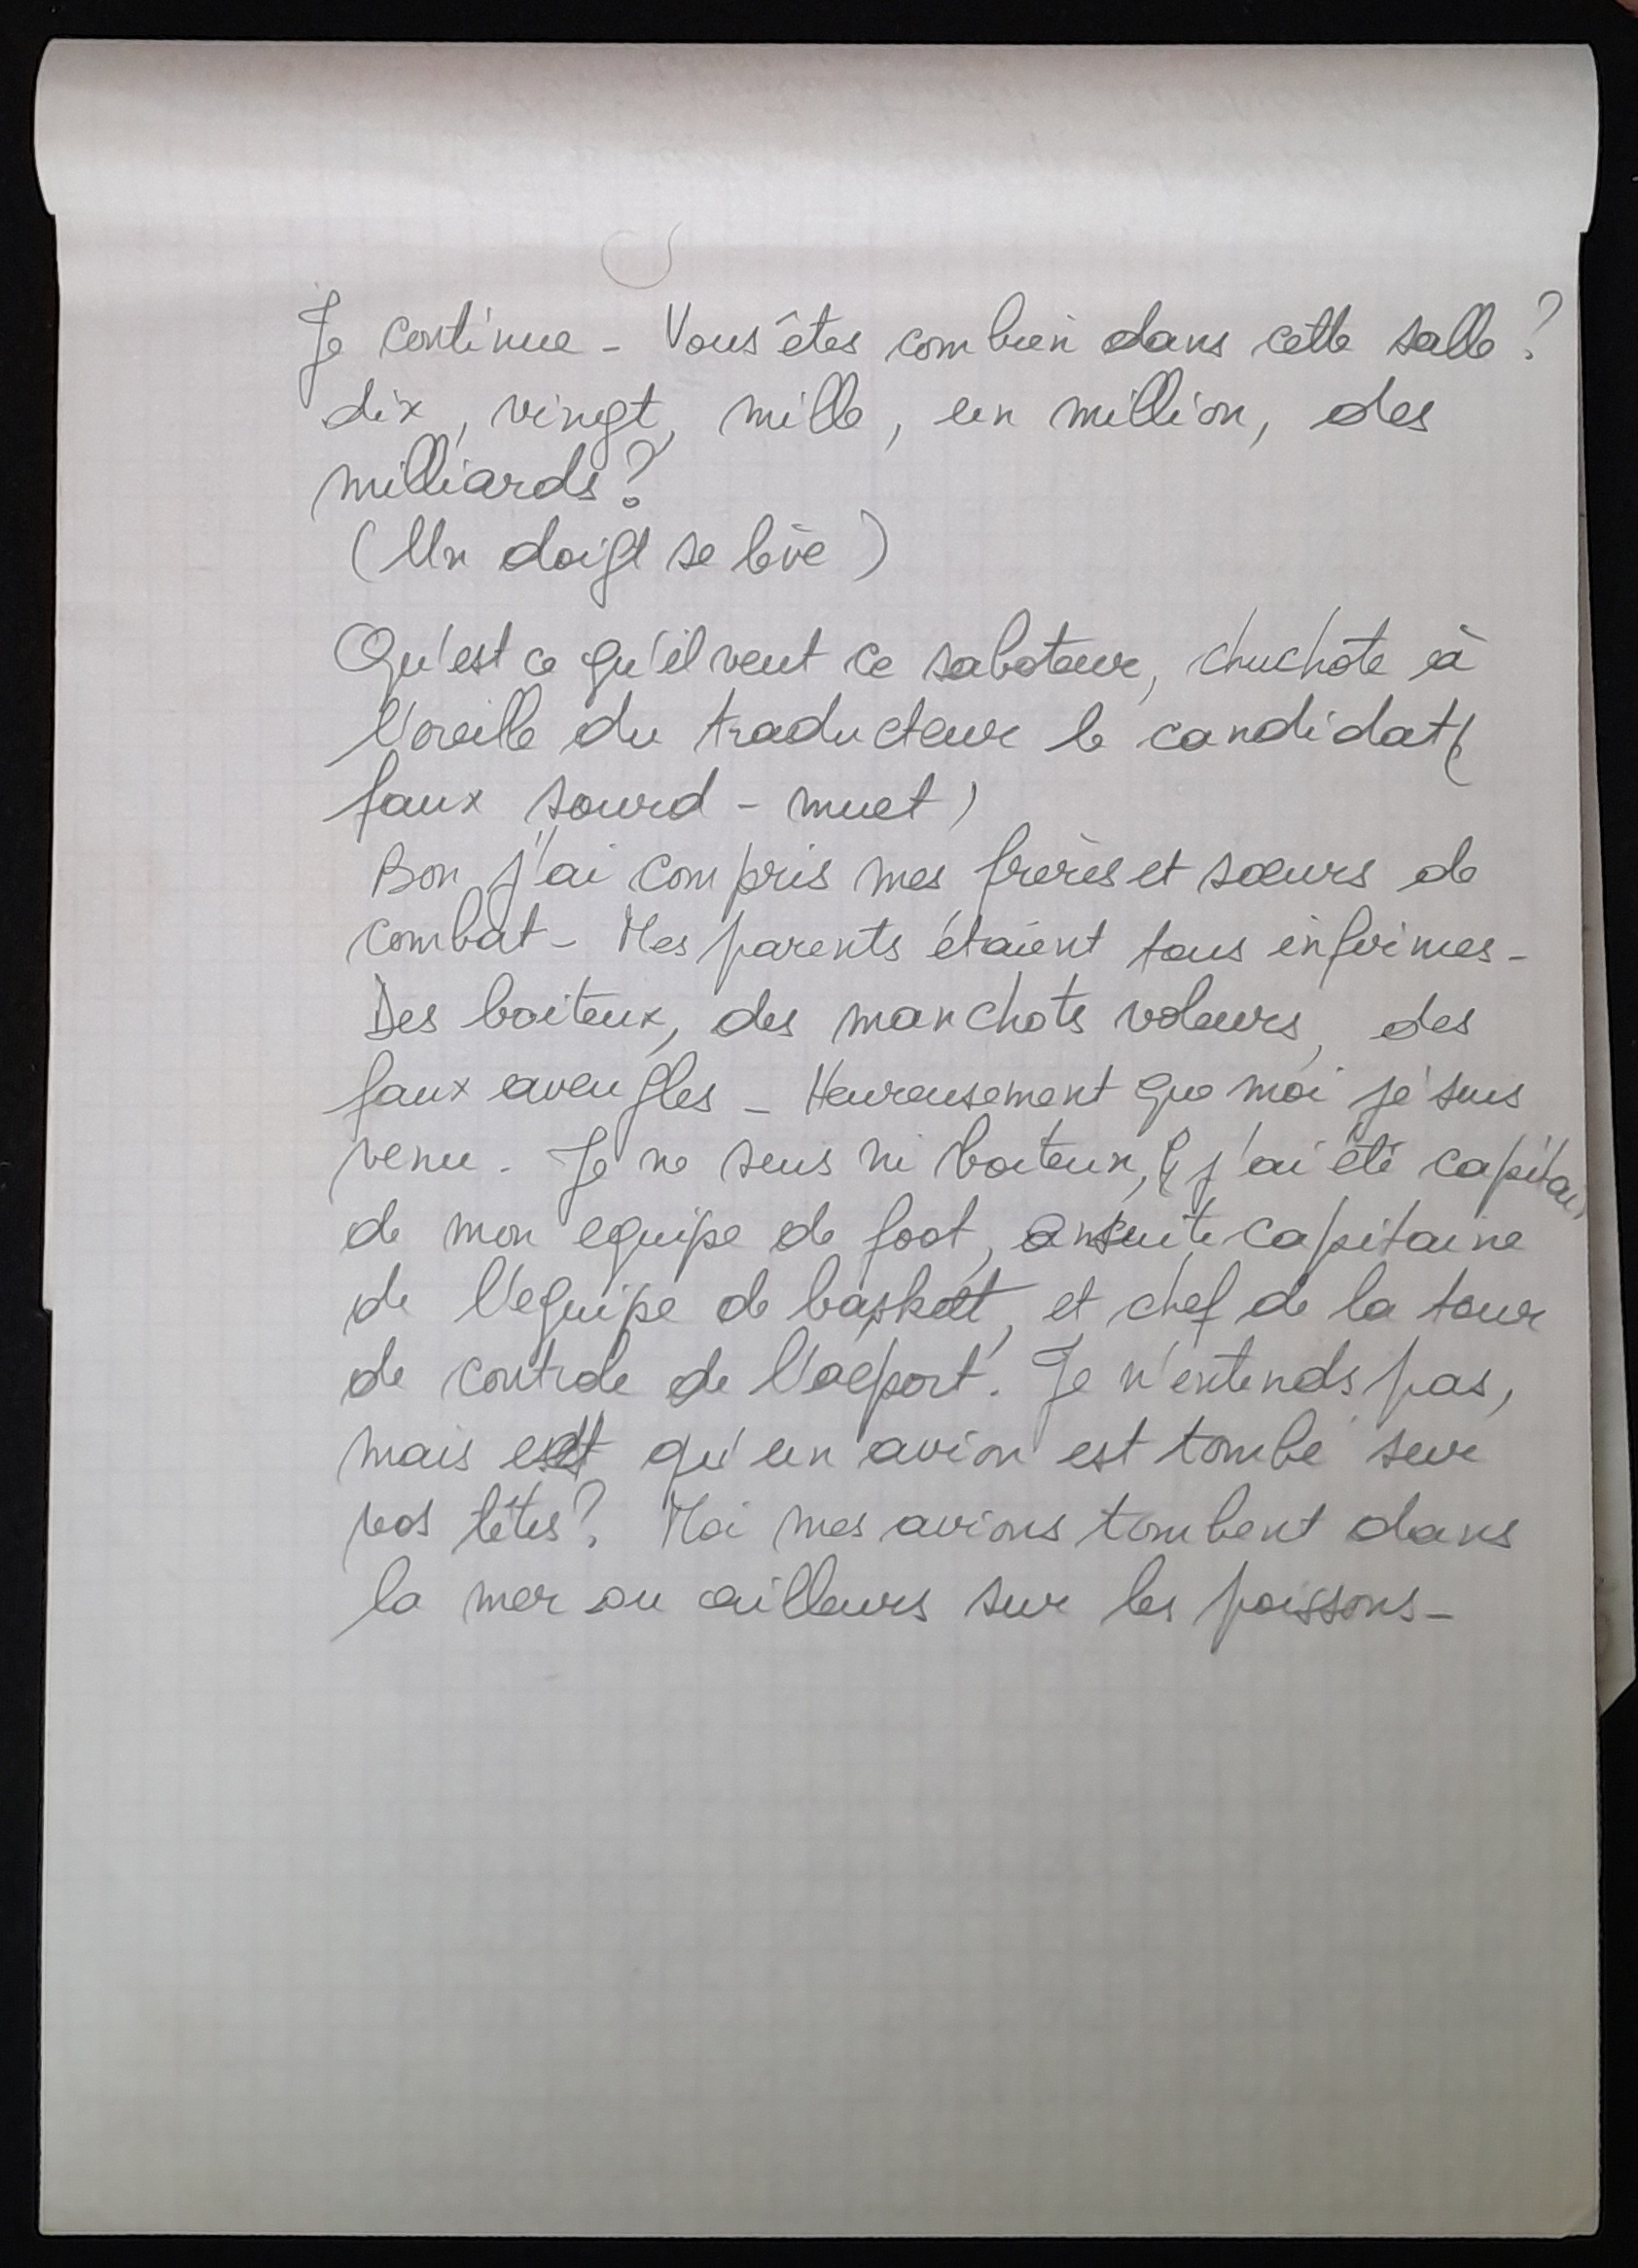 Je continue - Vous êtes combien dans cette salle ?
dix, vingt, mille, un million, des
milliards ?
(Un doigt se lève)
Qu'est ce qu'il veut ce saboteur, chuchote à
l'oreille du traducteur le candidat (
faux sourd - muet)
Bon j'ai compris mes frères et sœurs de
combat - Mes parents étaient tous infirmes -
Des boiteux, des manchots voleurs, des
faux aveugles - Heureusement que moi je suis
venu. Je ne suis ni boiteux, j'ai été capitai
de mon equipe de foot, ensuite capitaine
de l'equipe de baskett, et chef de la tour
de controle de l'aeport. Je n'entends pas,
mais est qu'un avion est tombé sur
vos têtes ? Moi mes avions tombent dans
la mer ou ailleurs sur les poissons -